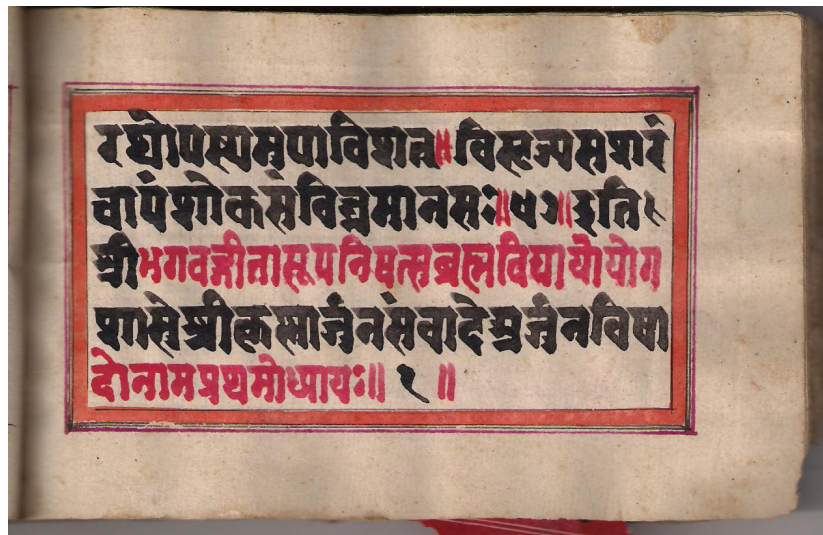 रथोपस्थमुपाविशत॥विसृज्यसशरं
चापंशोकसंविग्नमानसः॥४७॥इति
श्रीभगवद्गीतासूपनिषत्सुब्रह्मविद्यायांयोग
शास्त्रेश्रीकृष्णार्जुनसंवादेअर्जुनविषा
दोनामप्रथमोध्यायः॥१॥